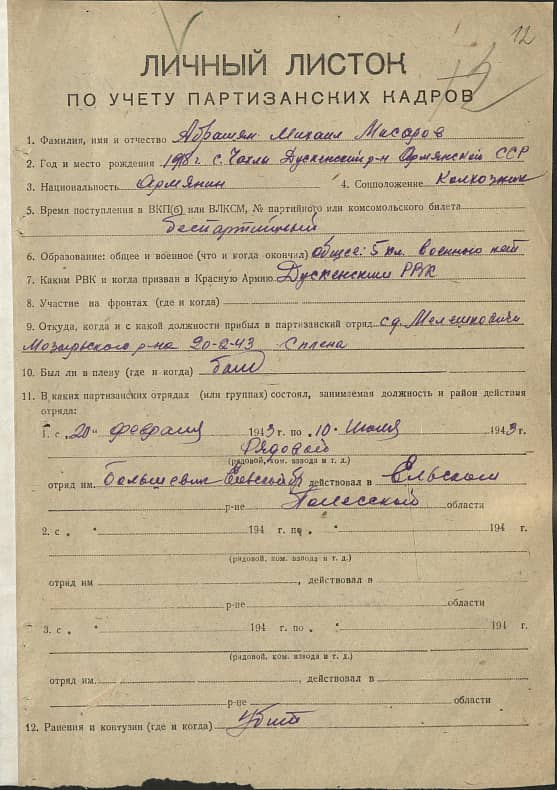 12
ЛИЧНЫЙ ЛИСТОК
ПО УЧЕТУ ПАРТИЗАНСКИХ КАДРОВ
1. Фамилия, имя и отчество Абрамян Михаил Макаров
2. Год и место рождения 1918 г. с. Чахлы Дускенский р-н Армянской ССР
3. Национальность Армянин 4. Соцположение Колхозник
5. Время поступления в ВКП(б) или ВЛКСМ, № партийного или комсомольского билета
беспартийный
6. Образование: общее и военное (что и когда окончил) общее: 5 кл. военного нет
7. Каким РВК и когда призван в Красную Армию Дускенским РВК
8. Участие на фронтах (где и когда)
9. Откуда, когда и с какой должности прибыл в партизанский отряд с д. Мелешковичи
Мозырьского р-на 20-2-43 с плена
10. Был ли в плену (где и когда) был
11. В каких партизанских отрядах (или группах) состоял, занимаемая должность и район действия
отряда:
1. с „20" февраля 1943 г. по „10" июля 1943 г.
Рядовой
(рядовой, ком. взвода и т. д.)
отряд им. Большевик действовал в Ельском
р-не Полесской области
2. с " " 194 г. по " " 194 г.
(рядовой, ком. взвода и т. д.)
отряд им , действовал в
р-не области
3. с " " 194 г. по " " 194 г.
(рядовой, ком. взвода и т. д.)
отряд им. , действовал в
р-не области
12. Ранения и контузии (где и когда) Убит